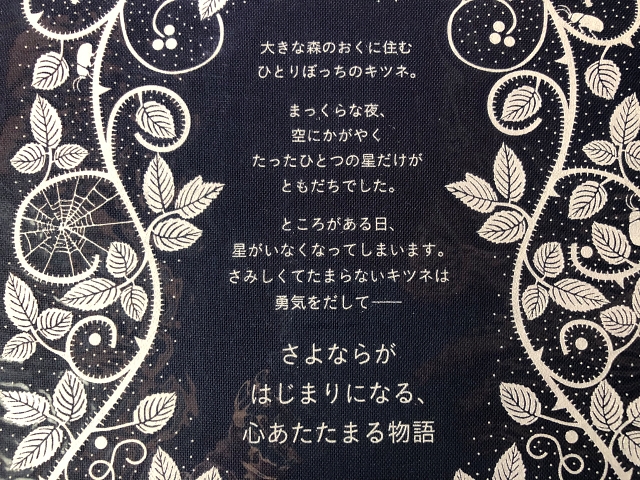 大きな森のおくに住む
ひとりぼっちのキツネ。
まっくらな夜、
空にかがやく
たったひとつの星だけが
ともだちでした。
ところがある日、
星がいなくなってしまいます。
さみしくてたまらないキツネは
勇気をだして——
さよならが
はじまりになる、
心あたたまる物語